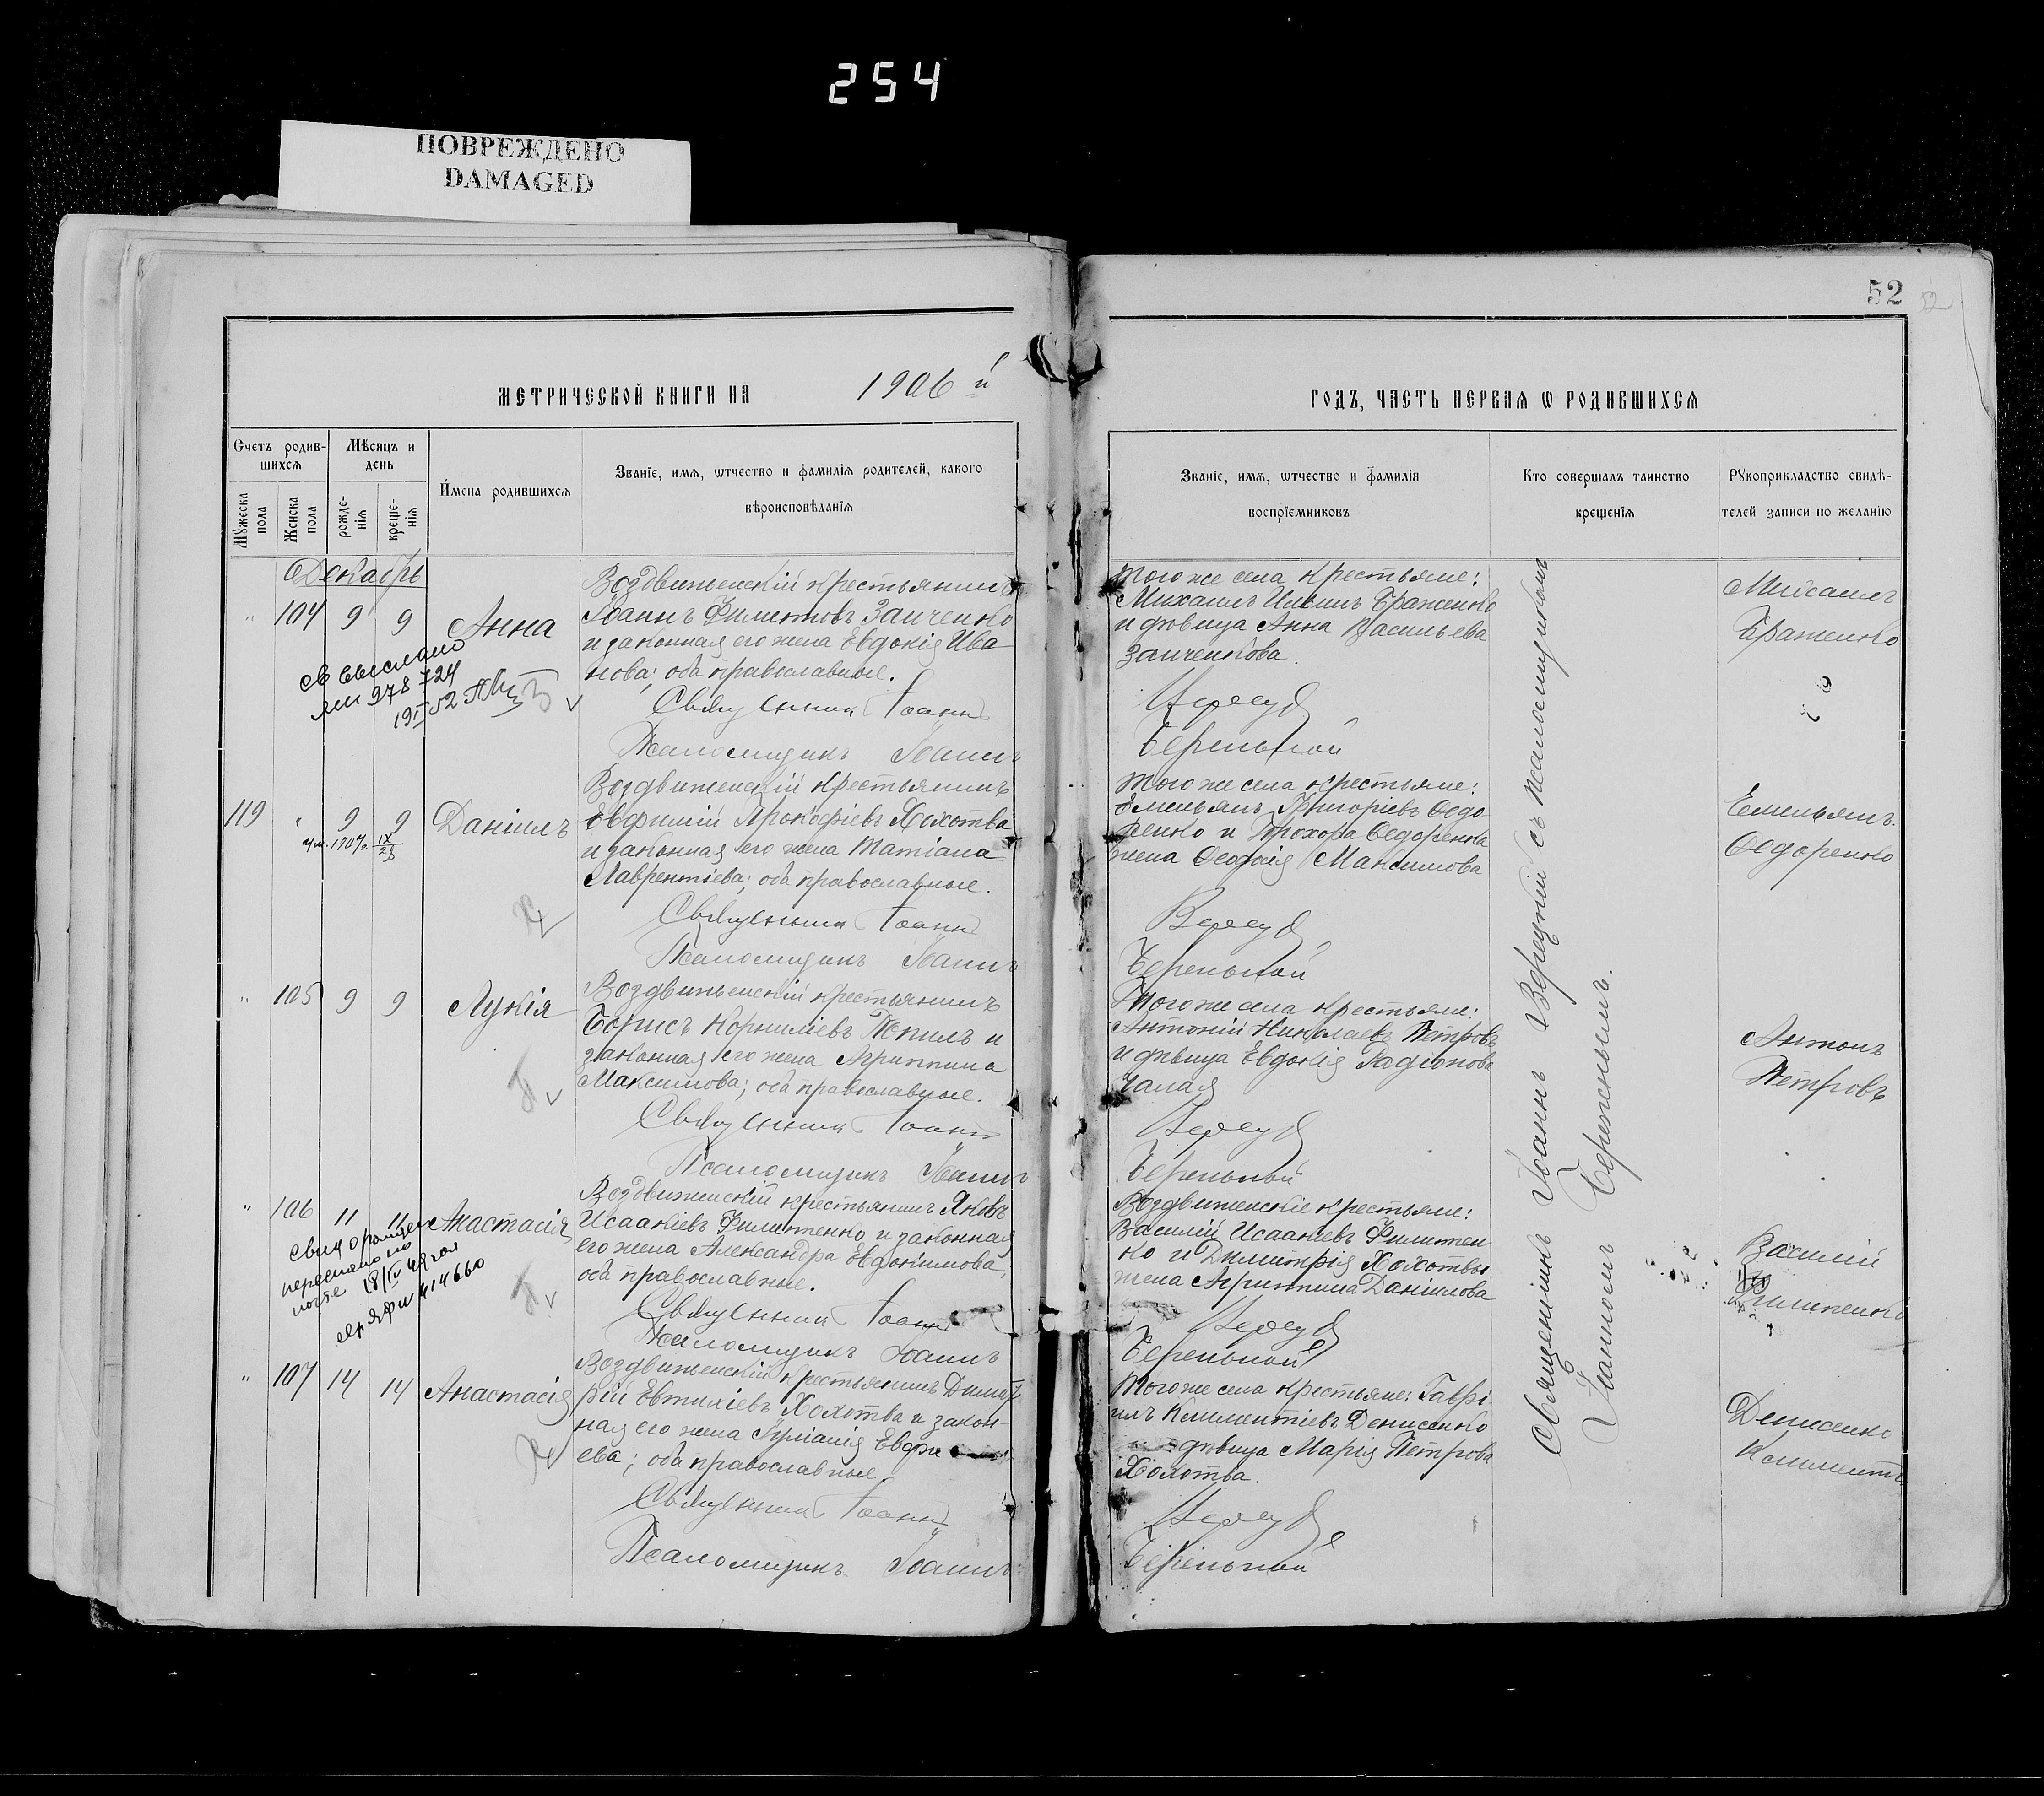 254
ПОВРЕЖДЕНО
DAMAGED
52
52
МЕТРИЧЕСКОЙ КНИГИ НА 1906 й
ГОДЪ, ЧАСТЬ ПЕРВАЯ Ѡ РОДИВШИХСЯ
Счетъ родив-
шихся
Мѣсяцъ и
день
Мужеска
пола
Женска
пола
рожде-
нія
креще-
нія
Имена родившихся
Званіе, имя, ѡтчество и фамилія родителей, какого
вѣроисповѣданія
Званіе, имя, ѡтчество и фамилія
воспріемниковъ
Кто совершалъ таинство
крещенія
Рукоприкладство свидѣ-
телей записи по желанію
Декабрь
" 104 9 9 Анна
Воздвиженскій крестьянинъ
Іоаннъ Заиченко
и законная его жена Евдокія Ива-
нова; оба православные.
Священникъ Іоаннъ
Псаломщикъ Іоаннъ
Того же села крестьяне:
Михаилъ Браженко
и дѣвица Анна Васильева
Заиченкова.
Верецкій
Бережной
Михаилъ
Браженко
св выслано
978724
52
119 " 9 9 Даніилъ
1907г. IX
Воздвиженскій крестьянинъ
Евфимій Прокофіевъ Хохотва
и законная его жена Татіана
Лаврентіева; оба православные.
Священникъ Іоаннъ
Псаломщикъ Іоаннъ
Того же села крестьяне:
Емельянъ Григоріевъ Ѳедо-
ренко и Прохора Ѳедоренка
жена Максимова
Верецкій
Бережной
Емельянъ
Ѳедоренко
" 105 9 9 Лукія
Воздвиженскій крестьянинъ
Борисъ Корниліевъ и
законная его жена Агриппина
Максимова; оба православные.
Священникъ Іоаннъ
Псаломщикъ Іоаннъ
Того же села крестьяне:
Антоній Николаевъ Петровъ
и дѣвица Евдокія Радіонова
Чалая
Верецкій
Бережной
Антонъ
Петровъ
" 106 11 11 Анастасія
Воздвиженскій крестьянинъ Яковъ
Исаакіевъ Филипенко и законная
его жена Александра Евдокимова,
оба православные.
Священникъ Іоаннъ
Псаломщикъ Іоаннъ
Воздвиженскіе крестьяне:
Василій Исаакіевъ Филипен-
ко и Димитрія Хохотвы
жена Агриппина Даніилова
Верецкій
Бережной
Василій
Филипенко
переслано по
почте 18/IV 49 года
414660
" 107 14 14 Анастасія
Воздвиженскій крестьянинъ Димит-
рій Евтихіевъ Хохотва и закон-
ная его жена Іуліанія
ева; оба православные.
Священникъ Іоаннъ
Псаломщикъ Іоаннъ
Того же села крестьяне: Гаврі-
илъ Климентіевъ Денисенко
дѣвица Марія Петрова
Хохотва.
Верецкій
Бережной
Денисенко
Климентъ
Священникъ Іоаннъ Верецкій съ псаломщикомъ
Іоанномъ Бережнымъ.